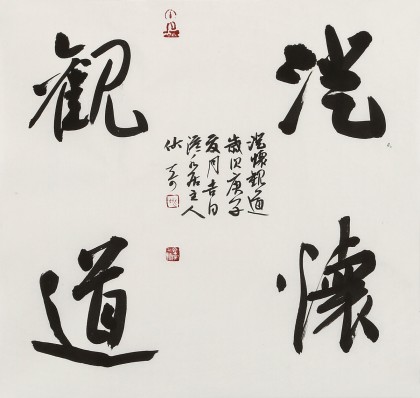 澄懷
観道
澄懷觀道
歲次庚子
夏月吉日
居主人